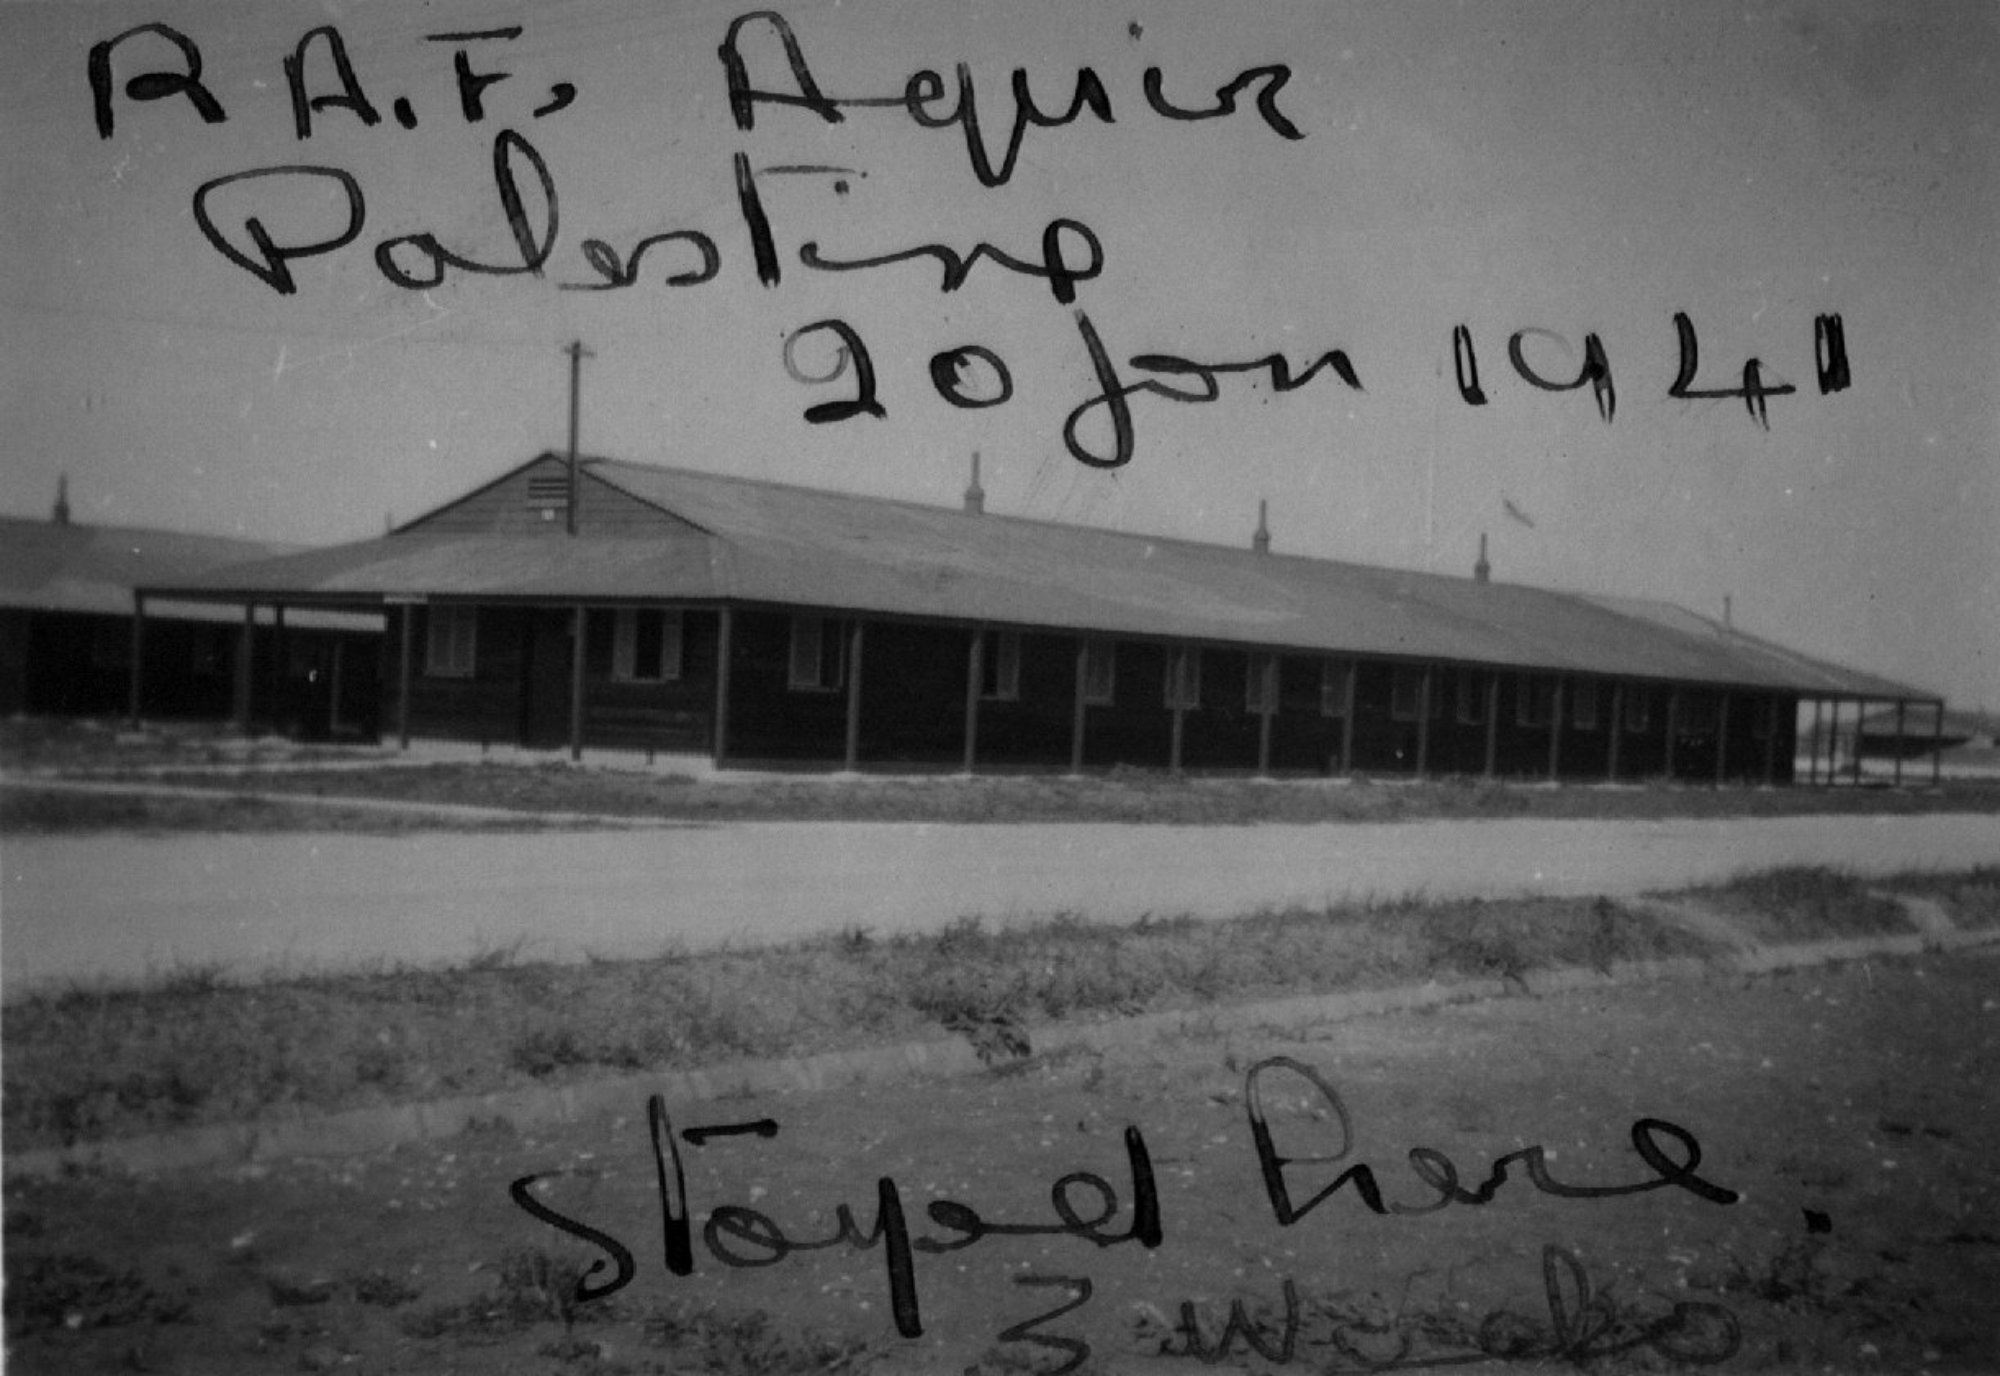 R.A.F. Aquir
Palestine
20 Jan 1941
Stayed here.
3 weeks.